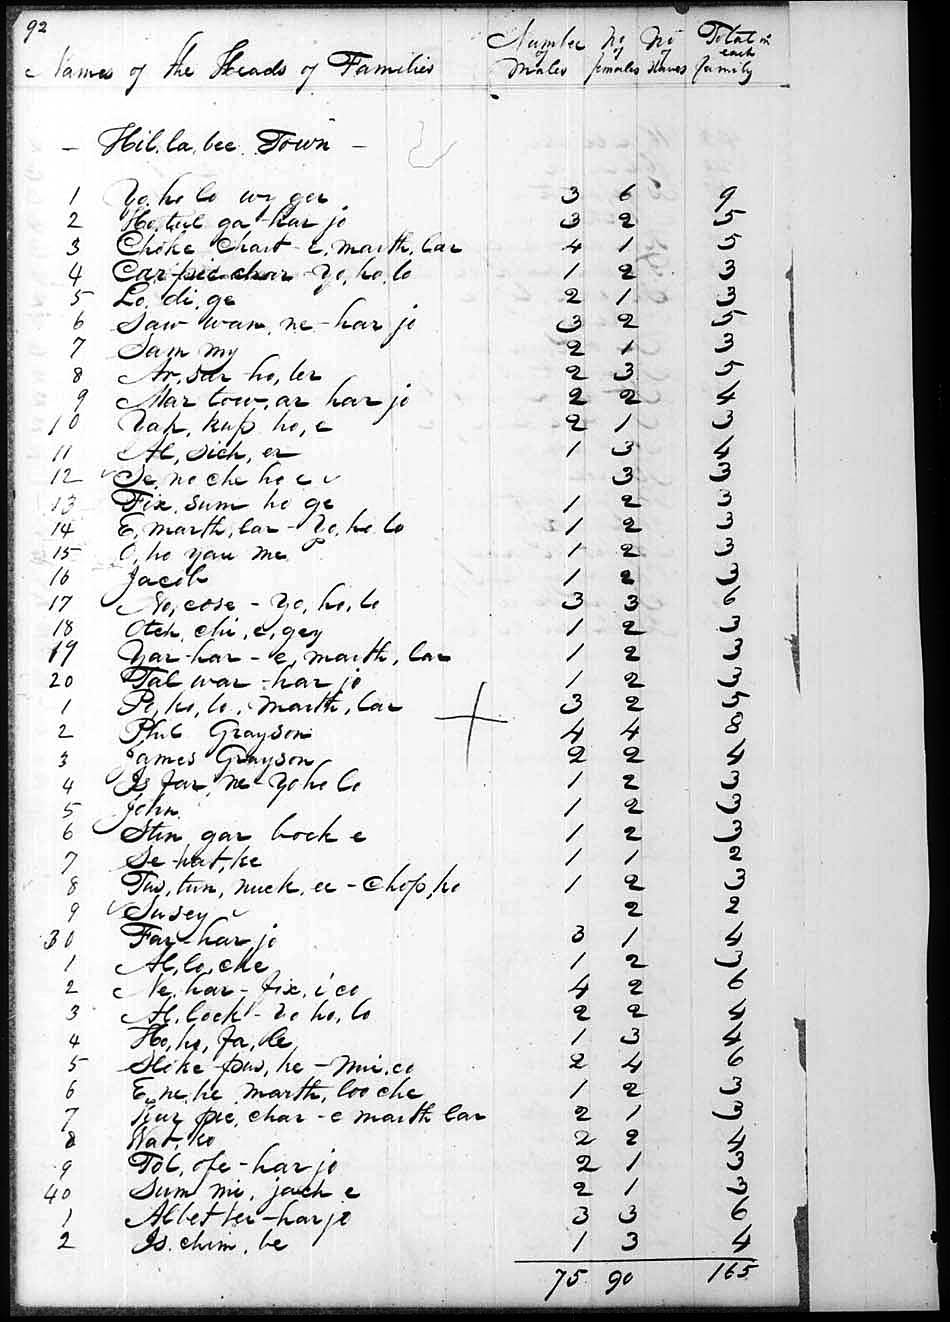 92
Names of the Heads of Families Number of Males No of females No of slaves Total in each family
- Hil,la,bee Town -
1 Yo,ho lo wy ger 3 6 9
2 Ho,tul ga - har jo 3 2 5
3 Choke Chart - e, marth, lar 4 1 5
4 Car,pic char - Yo, ho, lo 1 2 3
5 Lo, di, ge 2 1 3
6 Saw wan, ne - har jo 3 2 5
7 Sam my 2 1 3
8 Ar, sar - ho, ler 2 3 5
9 Mar tow, ar har jo 2 2 4
10 Yah, kup ho, e 2 1 3
11 Al, sich, er 1 3 4
12 Se, no che ho e 3 3
13 Fix, sum ho ge 1 2 3
14 E, marth, lar - Yo, ho lo 1 2 3
15 O, ho yau me 1 2 3
16 Jacob 1 2 3
17 No, cose - Yo, ho, lo 3 3 6
18 Otch, chi, e, gey 1 2 3
19 Yar-har - e, marth, lar 1 2 3
20 Tal war - har jo 1 2 3
1 Po, ho, lo, Marth, lar 3 2 5
2 Phil Grayson 4 4 8
3 James Grayson 2 2 4
4 Is far, ne - Yo ho lo 1 2 3
5 John 1 2 3
6 Stin gar hock e 1 2 3
7 Se-hat, ke 1 1 2
8 Tus, tun, nuck, ee - Chop, ko 1 2 3
9 Susey 2 2
30 Far - har jo 3 1 4
1 Al, lo, che 1 2 3
2 Ne, har - fix, i co 4 2 6
3 Al, lock - Yo ho, lo 2 2 4
4 Ho, ho, fa, de, 1 3 4
5 Hoke - pus, he - mi, co 2 4 6
6 E, ne, he marth, loo che 1 2 3
7 Kar pic, char - e marth lar 2 1 3
8 Wat, ko 2 2 4
9 Tol, ofe - har jo 2 1 3
40 Sum mi, jach e 2 1 3
1 Albet ter - har jo 3 3 6
2 Is, chim, be 1 3 4
75 90 165